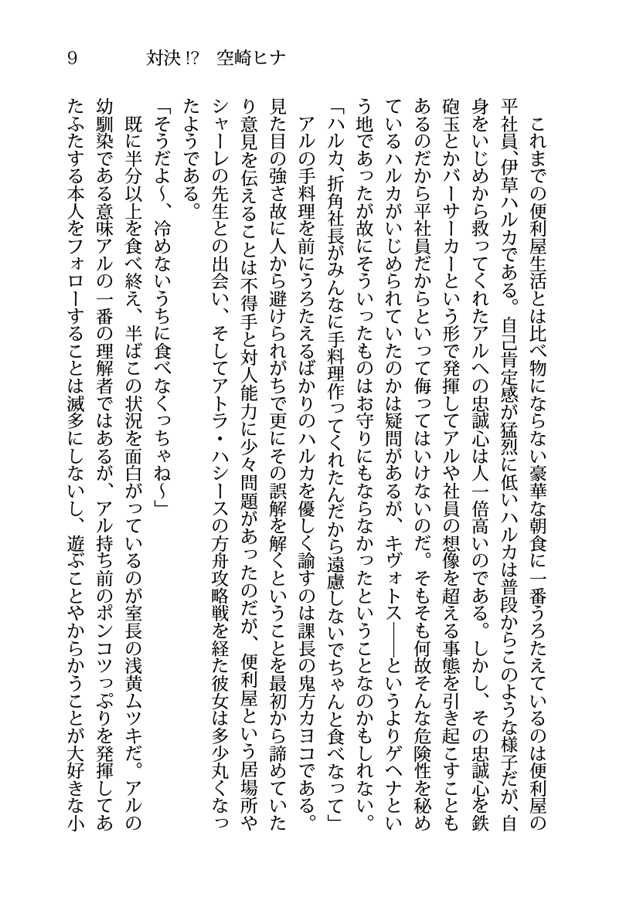 9 対決!? 空崎ヒナ
これまでの便利屋生活とは比べ物にならない豪華な朝食に一番うろたえているのは便利屋の
平社員、伊草ハルカである。自己肯定感が猛烈に低いハルカは普段からこのような様子だが、自
身をいじめから救ってくれたアルへの忠誠心は人一倍高いのである。しかし、その忠誠心を鉄
砲玉とかバーサーカーという形で発揮してアルや社員の想像を超える事態を引き起こすことも
あるのだから平社員だからといって侮ってはいけないのだ。そもそも何故そんな危険性を秘め
ているハルカがいじめられていたのかは疑問があるが、キヴォトス――というよりゲヘナとい
う地であったが故にそういったものはお守りにもならなかったということなのかもしれない。
「ハルカ、折角社長がみんなに手料理作ってくれたんだから遠慮しないでちゃんと食べなって」
アルの手料理を前にうろたえるばかりのハルカを優しく諭すのは課長の鬼方カヨコである。
見た目の強さ故に人から避けられがちで更にその誤解を解くということを最初から諦めていた
り意見を伝えることは不得手と対人能力に少々問題があったのだが、便利屋という居場所や
シャーレの先生との出会い、そしてアトラ・ハシースの方舟攻略戦を経た彼女は多少丸くなっ
たようである。
「そうだよ～、冷めないうちに食べなくっちゃね～」
既に半分以上を食べ終え、半ばこの状況を面白がっているのが室長の浅黄ムツキだ。アルの
幼馴染である意味アルの一番の理解者ではあるが、アル持ち前のポンコツっぷりを発揮してあ
たふたする本人をフォローすることは滅多にしないし、遊ぶことやからかうことが大好きな小